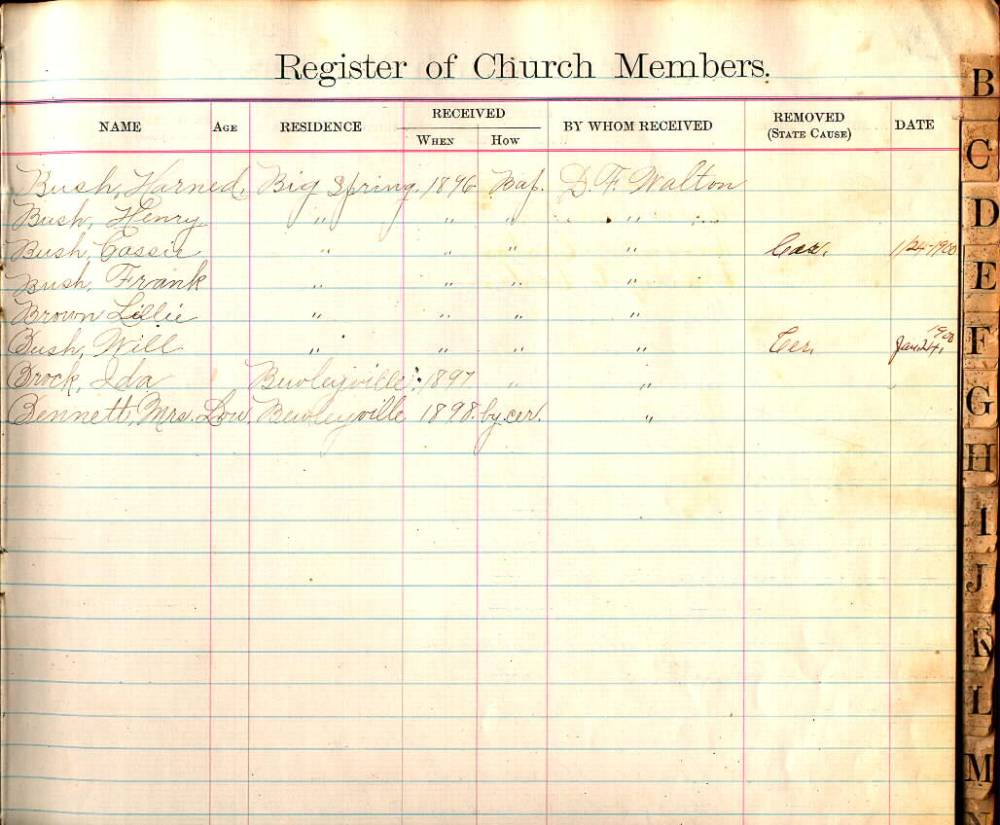 Register of Church Members.
NAME AGE RESIDENCE RECEIVED WHEN HOW BY WHOM RECEIVED REMOVED (STATE CAUSE) DATE
Bush, Harned. Big Spring. 1896 Bap. D. F. Walton
Bush, Henry " " " "
Bush, Cassie " " " " 1/24-1900
Bush, Frank " " " "
Brown Lillie " " " "
Bush, Will " " " " Cer. Jan. 24, 1900
Brock, Ida Bewleyville 1897 " "
Bennett, Mrs. Lou. Bewleyville 1898. by cer. "
B
C
D
E
F
G
H
I
J
K
L
M
N